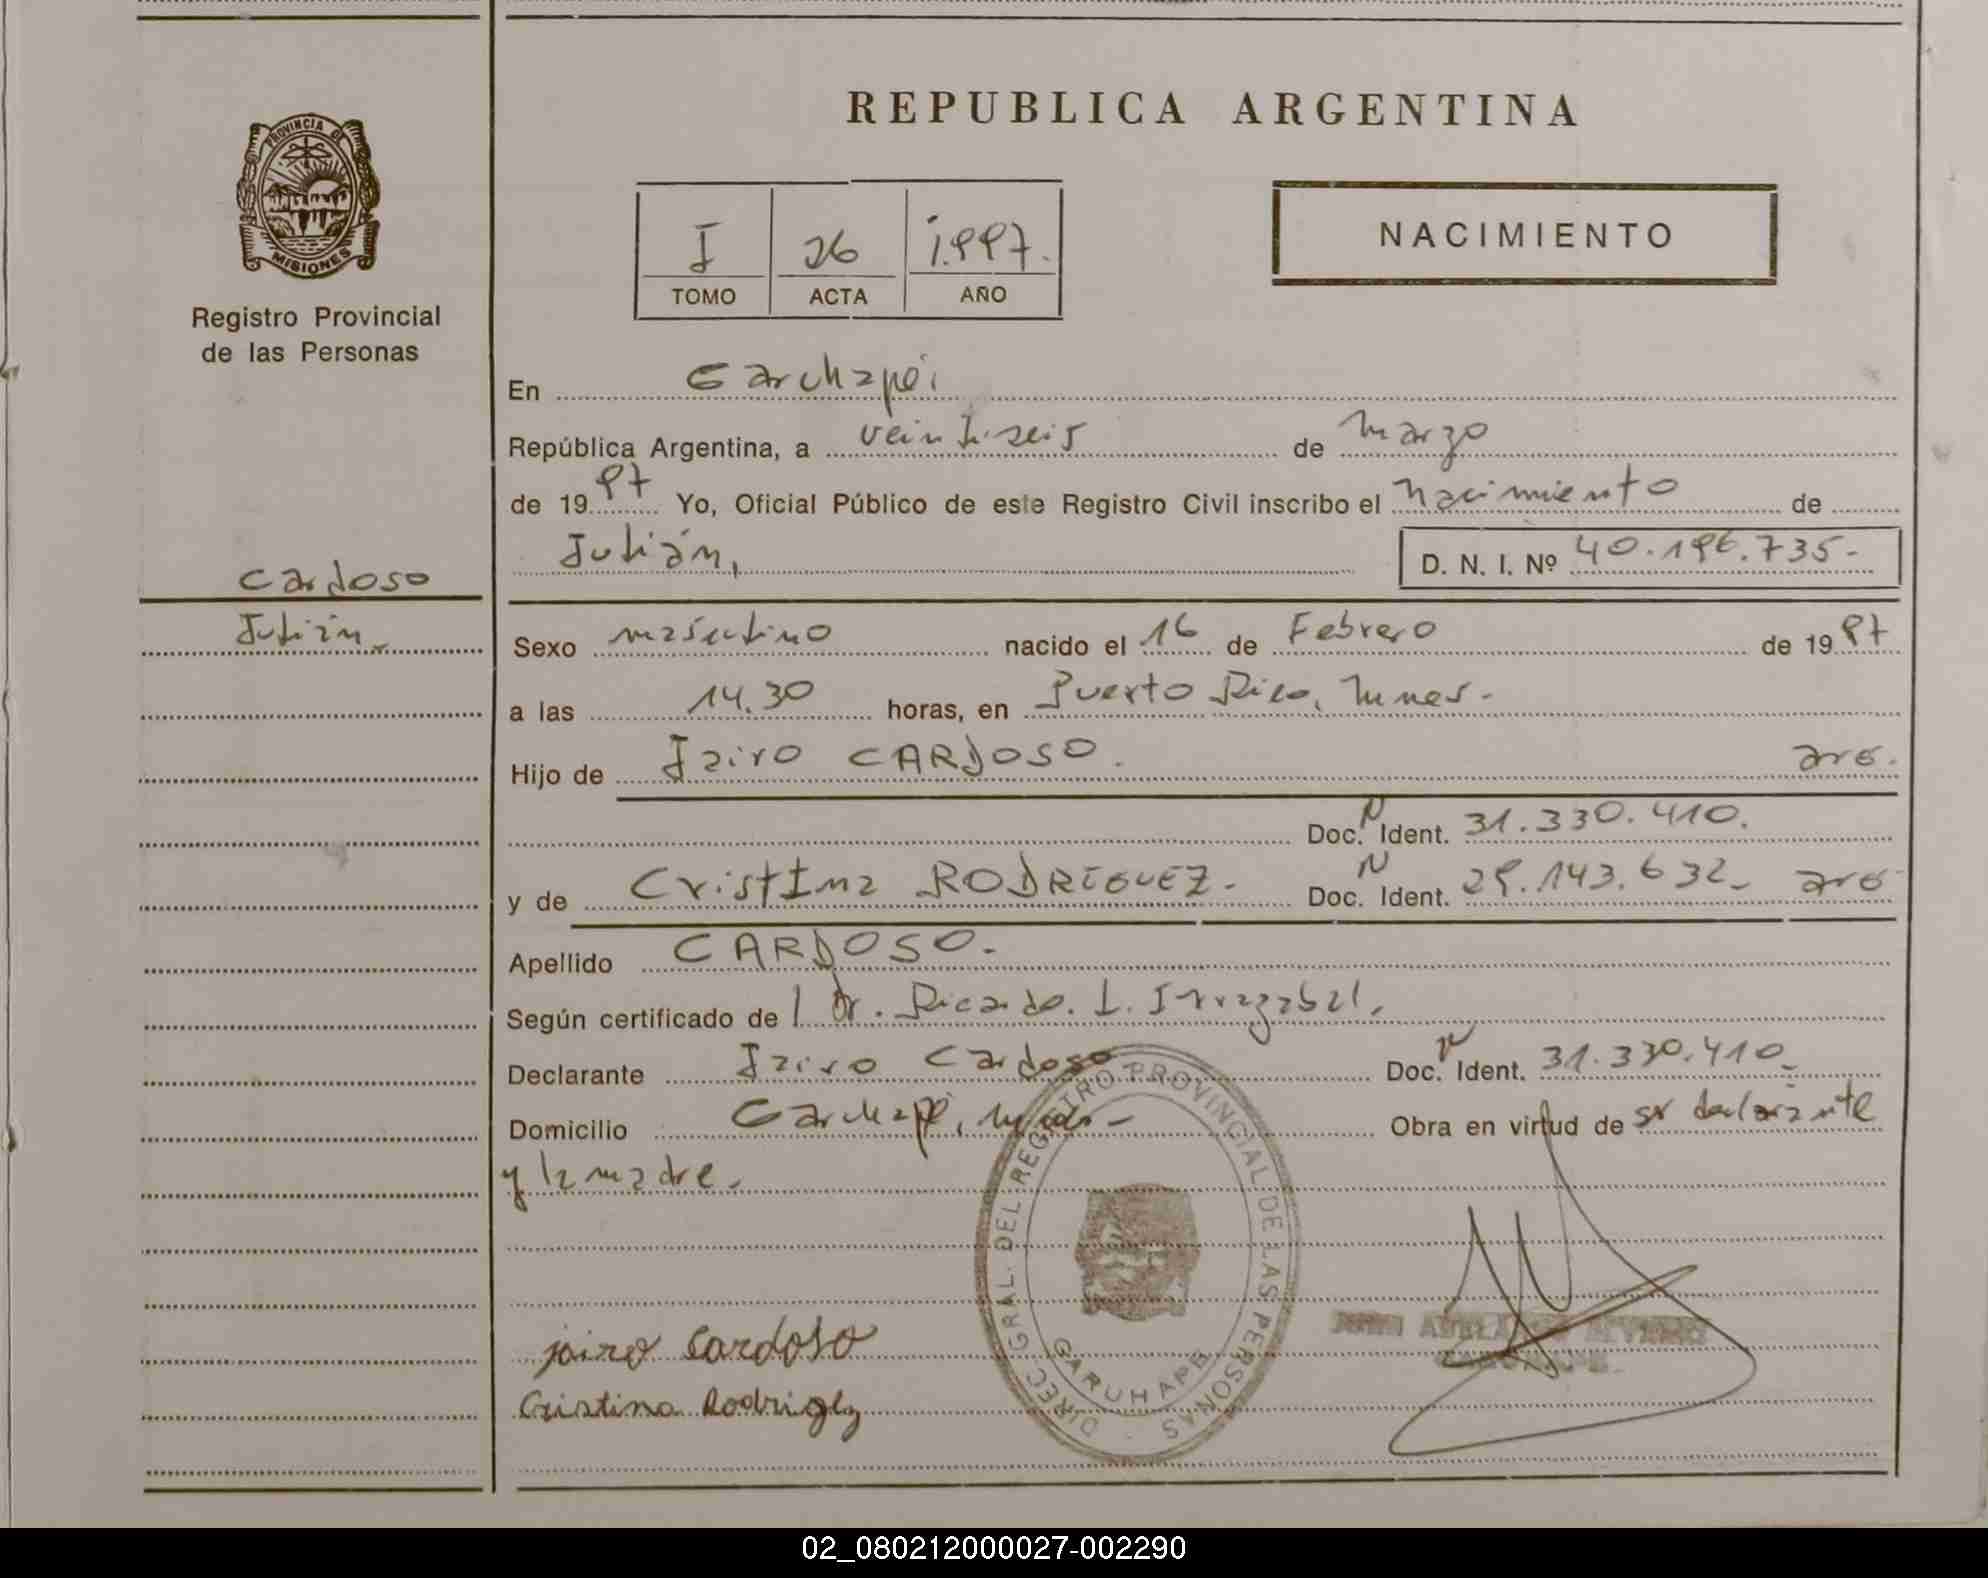 REPUBLICA ARGENTINA
PROVINCIA DE
MISIONES
Registro Provincial
de las Personas
I 26 1.997.
TOMO ACTA AÑO
NACIMIENTO
En Garuhapé.
República Argentina, a veintiseis de marzo
de 1997 Yo, Oficial Público de este Registro Civil inscribo el nacimiento de
Julián, D. N. I. Nº 40.196.735-
Cardoso
Julián
Sexo masculino nacido el 16 de Febrero de 1997
a las 14.30 horas, en Puerto Rico,
Hijo de Jairo CARDOSO. arg.
Doc. N Ident. 31.330.410.
y de Cristina RODRIGUEZ. Doc. N Ident. 29.143.632- arg
Apellido CARDOSO.-
Según certificado de Dr. Ricardo. L. Irrazabal.
Declarante Jairo Cardoso Doc. N Ident. 31.330.410-
Domicilio Garuhapé, Obra en virtud de ser declarante
y la madre.
DIREC. GRAL. DEL REGISTRO PROVINCIAL DE LAS PERSONAS
GARUHAPE
jairo Cardoso
Cristina Rodriguez
02_080212000027-002290